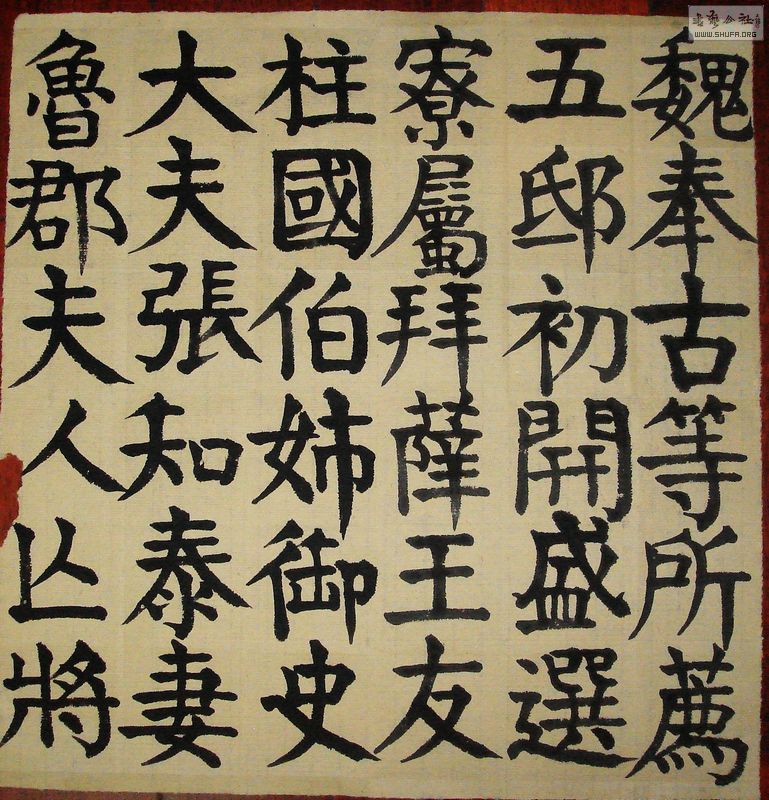 魏奉古等所薦
五邸初開盛選
寮屬拜薛王友
柱國伯姉御史
大夫張知泰妻
魯郡夫人亾將
WWW.SHUFA.ORG